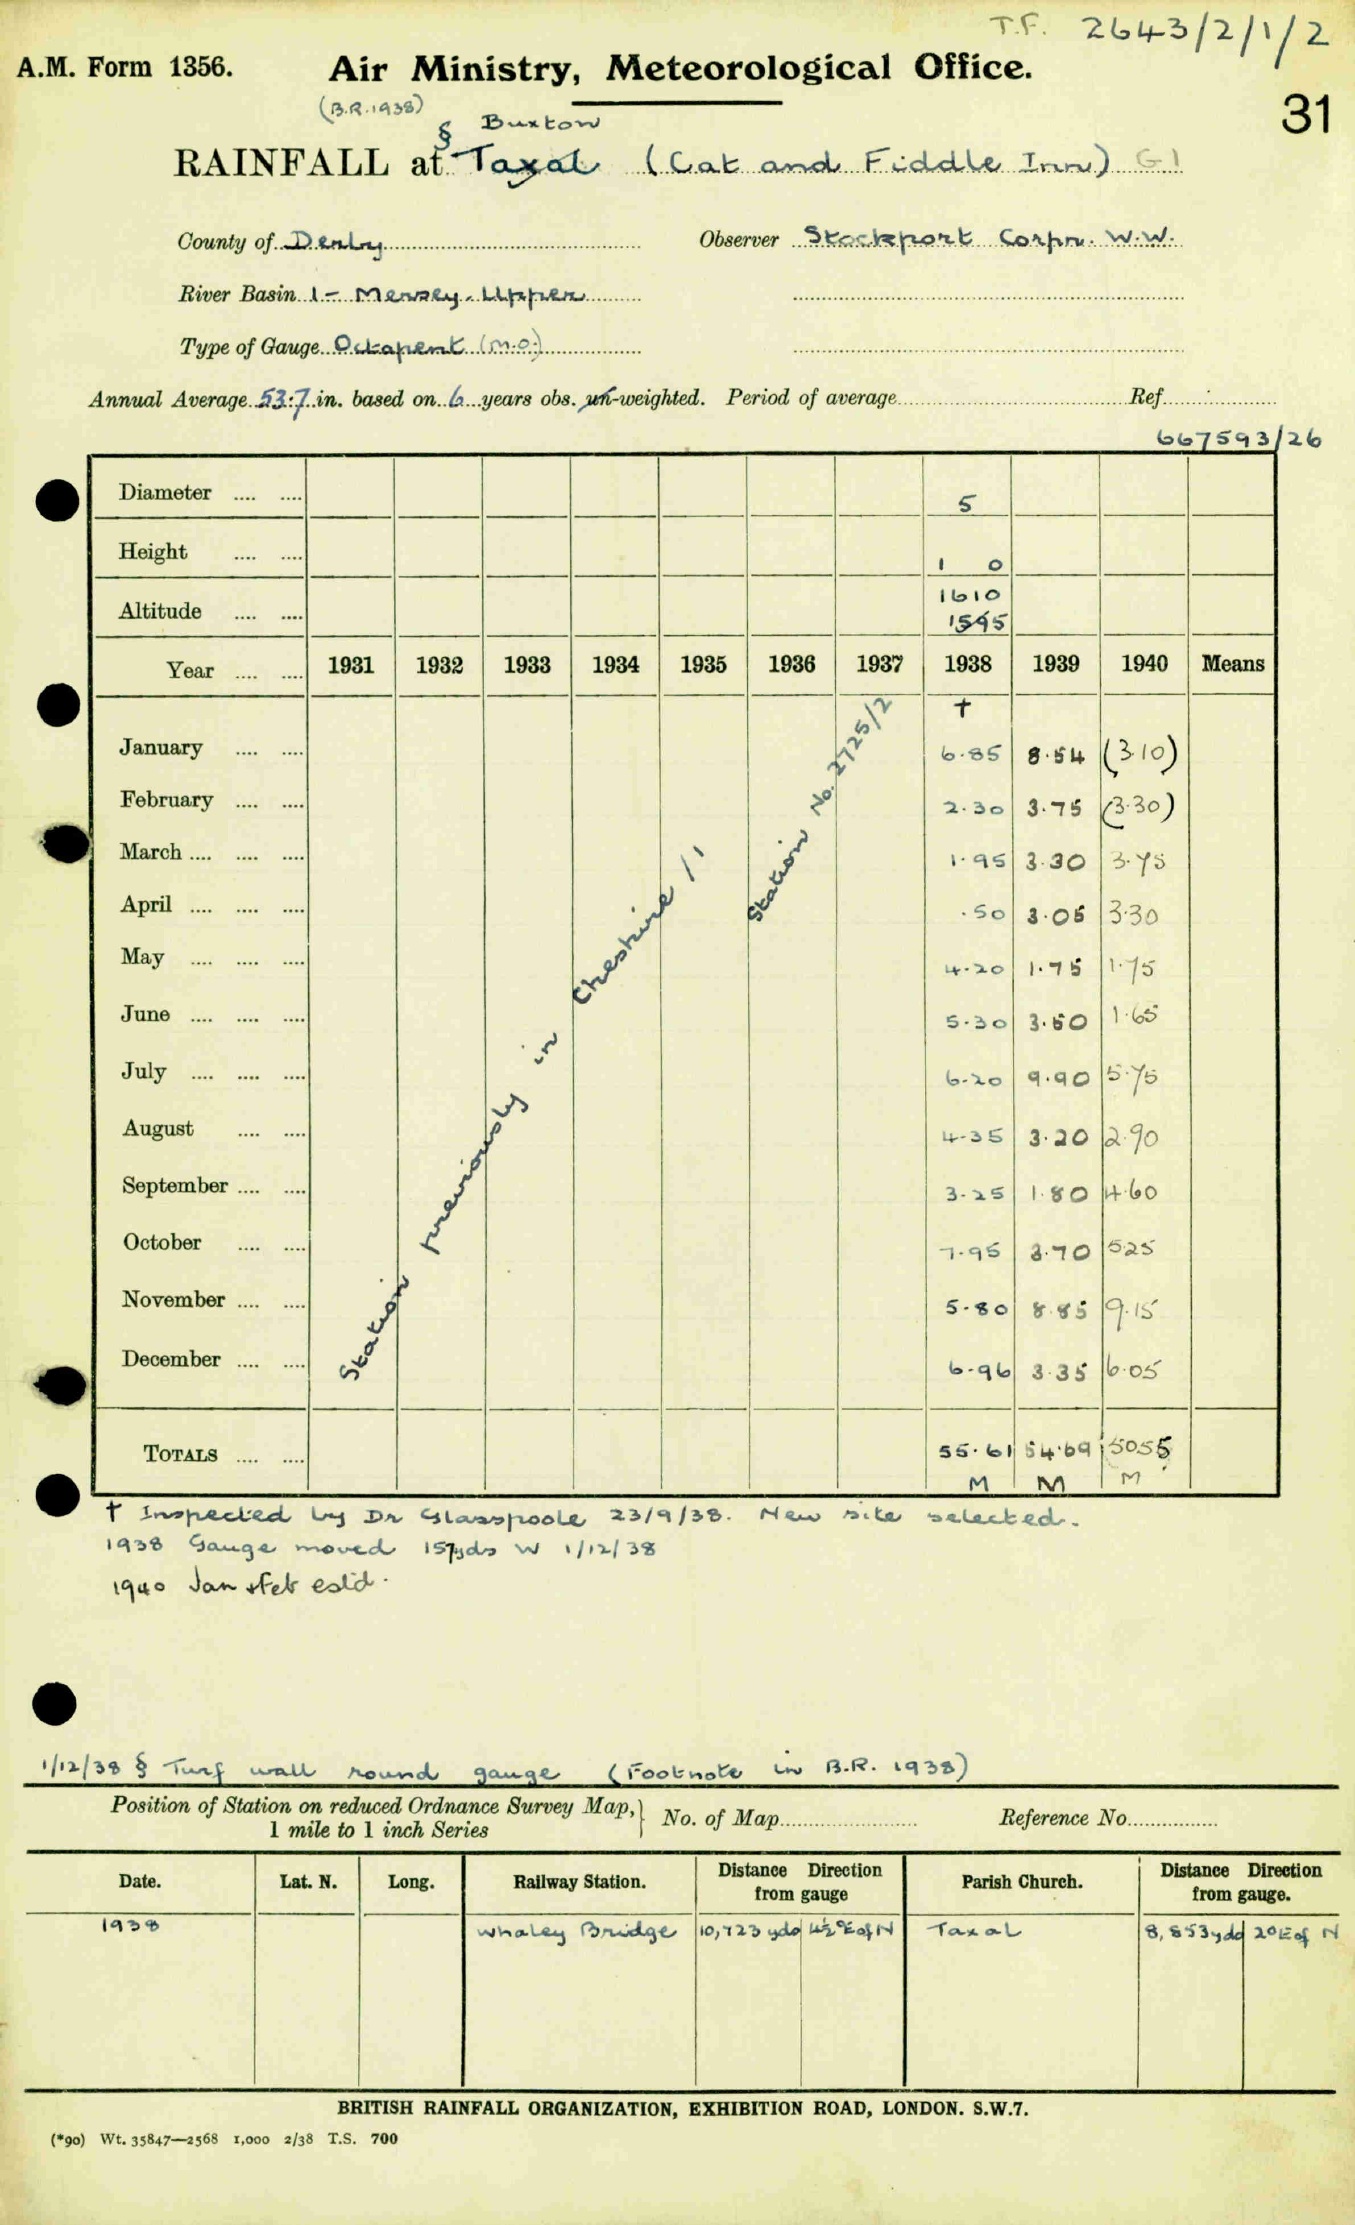 T.F. 2643/2/1/2
A.M. Form 1356. Air Ministry, Meteorological Office.
31
(B.R. 1938) § Buxton
RAINFALL at Taxal (Cat and Fiddle Inn) G1
County of Derby Observer Stockport Corpn. W.W.
River Basin 1 - Mersey. Upper
Type of Gauge Octapent (M.O.)
Annual Average 53.7 in. based on 6 years obs. un-weighted. Period of average Ref.
667593/26
Diameter .... .... 5
Height .... .... 1 0
1610
Altitude .... .... 1595
Year .... .... 1931 1932 1933 1934 1935 1936 1937 1938 1939 1940 Means
†
January .... .... 6.85 8.54 (3.10)
February .... .... 2.30 3.75 (3.30)
March .... .... .... 1.95 3.30 3.75
April .... .... .... .50 3.05 3.30
May .... .... .... 4.20 1.75 1.75
June .... .... .... 5.30 3.50 1.65
July .... .... .... 6.20 9.90 5.75
August .... .... 4.35 3.20 2.90
September .... .... 3.25 1.80 4.60
October .... .... 7.95 3.70 5.25
November .... .... 5.80 8.85 9.15
December .... .... 6.96 3.35 6.05
TOTALS .... .... 55.61 54.69 50.55
M M M
Station previously in Cheshire / 1
Station No. 2725/2
† Inspected by Dr Glasspoole 23/9/38. New site selected.
1938 Gauge moved 157yds W 1/12/38
1940 Jan & Feb estd.
1/12/38 § Turf wall round gauge (Footnote in B.R. 1938)
Position of Station on reduced Ordnance Survey Map, 1 mile to 1 inch Series } No. of Map Reference No.
Date. Lat. N. Long. Railway Station. Distance Direction from gauge Parish Church. Distance Direction from gauge.
1938 Whaley Bridge 10,723 yds 4½°E of N Taxal 8,853 yds 2°E of N
BRITISH RAINFALL ORGANIZATION, EXHIBITION ROAD, LONDON. S.W.7.
(*90) Wt. 35847—2568 1,000 2/38 T.S. 700